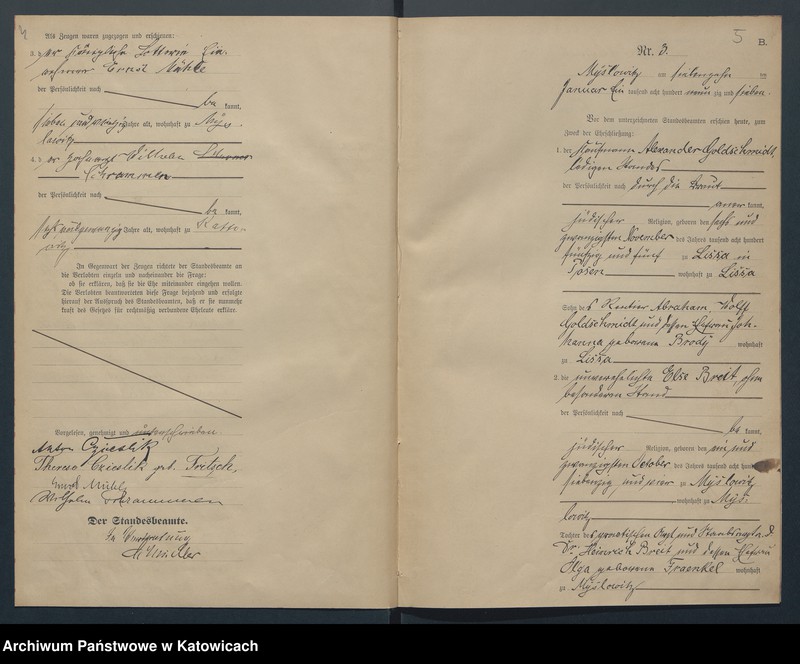 4
Als Zeugen waren zugezogen und erschienen:
3. der Königliche Lotterie Ein-
nehmer Ernst Mühle
der Persönlichkeit nach
be kannt,
sieben und zwanzig Jahre alt, wohnhaft zu Mys-
lowitz
4. der Wilhelm
Schrammen
der Persönlichkeit nach
be kannt,
Jahre alt, wohnhaft zu Katto-
witz
In Gegenwart der Zeugen richtete der Standesbeamte an
die Verlobten einzeln und nacheinander die Frage:
ob sie erklären, daß sie die Ehe miteinander eingehen wollen.
Die Verlobten beantworteten diese Frage bejahend und erfolgte
hierauf der Ausspruch des Standesbeamten, daß er sie nunmehr
kraft des Gesetzes für rechtmäßig verbundene Eheleute erkläre.
Vorgelesen, genehmigt und unterschrieben
Czieslik
Therese Czieslik geb. Fritsch
Ernst Mühle
Wilhelm Schrammen
Der Standesbeamte.
In Vertretung
5
B.
Nr. 3.
Myslowitz am siebenzehn ten
Januar Ein tausend acht hundert neun zig und sieben
Vor dem unterzeichneten Standesbeamten erschien heute, zum
Zweck der Eheschließung:
1. der Kaufmann Alexander Goldschmidt,
ledigen Standes
der Persönlichkeit nach durch die Braut
aner kannt,
jüdischer Religion, geboren den sechs und
zwanzigsten November des Jahres tausend acht hundert
fünfzig und fünf zu Lissa in
Posen wohnhaft zu Lissa
Sohn des Rentier Abraham Wolff
Goldschmidt und dessen Ehefrau Joh-
hanna geborene Brody wohnhaft
zu Lissa
2. die unverehelichte Else Breit, ohne
besonderen Stand
der Persönlichkeit nach
be kannt,
jüdischer Religion, geboren den ein und
zwanzigsten October des Jahres tausend acht hundert
siebenzig und vier zu Myslowitz
wohnhaft zu Mys-
lowitz
Tochter des practischen Arzt und Stabsarzt a. D.
Dr. Heinrich Breit und dessen Ehefrau
Olga geborene Fraenkel wohnhaft
zu Myslowitz
Archiwum Państwowe w Katowicach